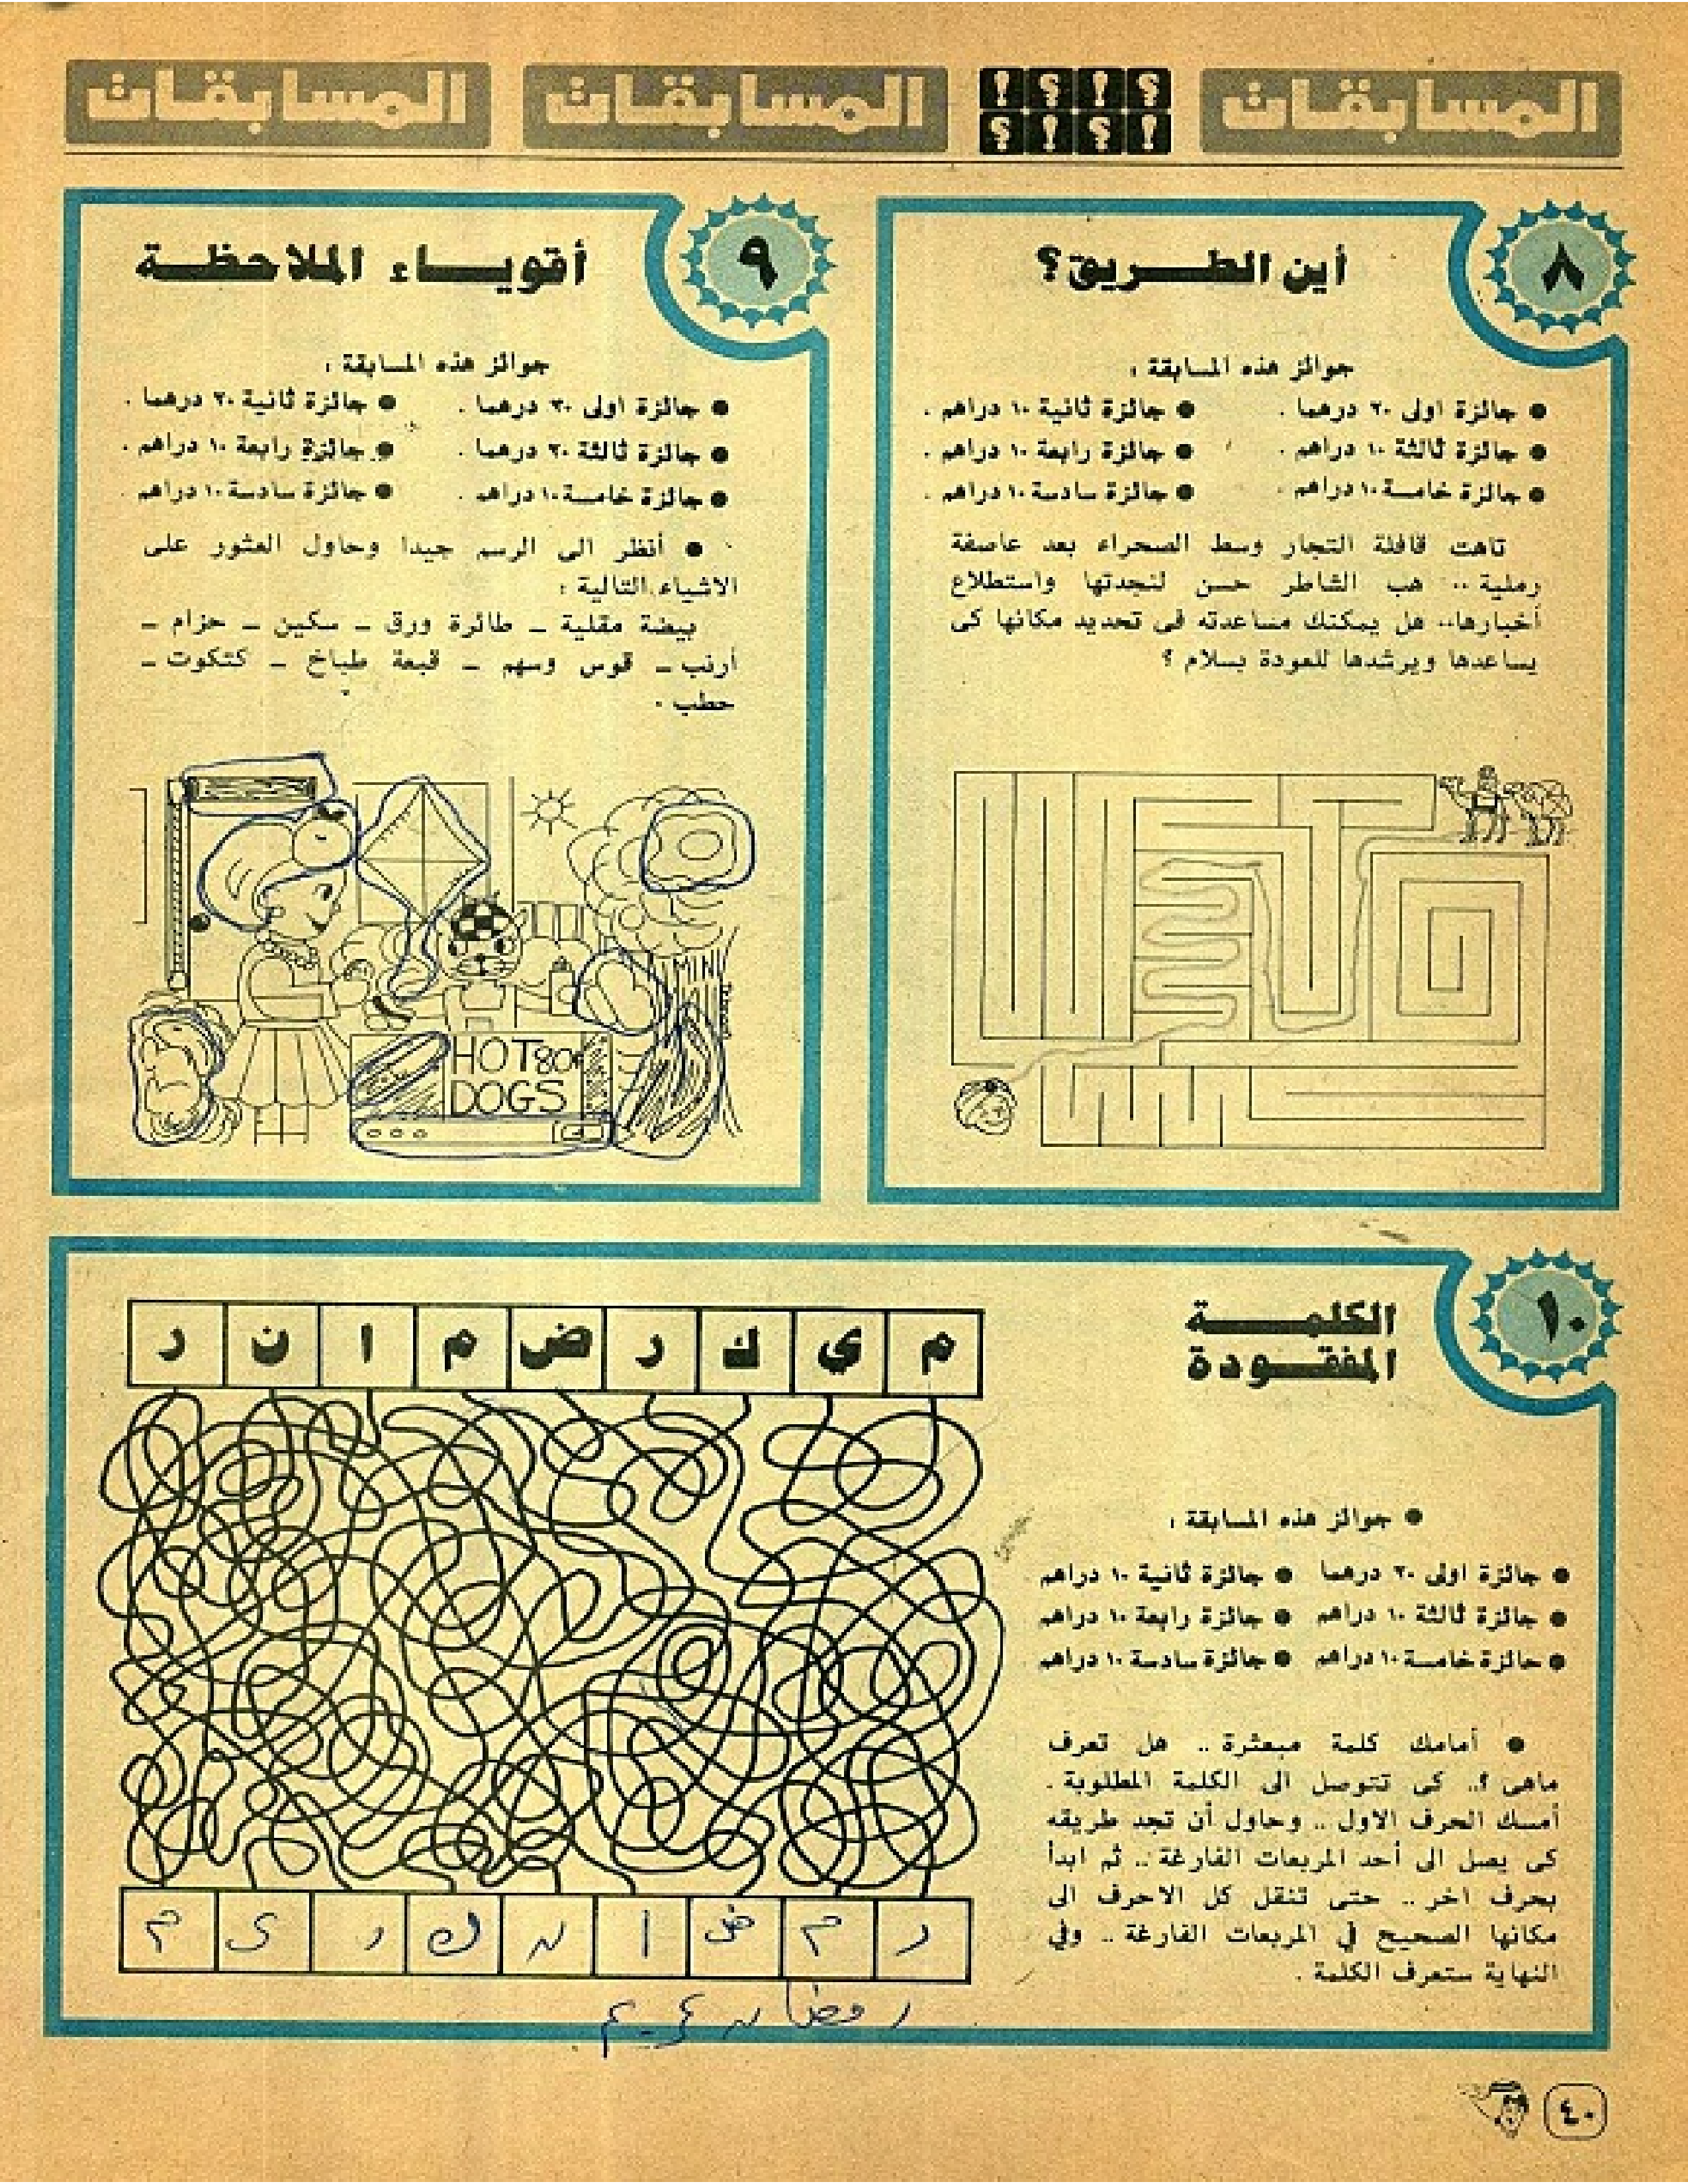 المسابقات
المسابقات
المسابقات
٨
أين الطريق؟
جوائز هذه المسابقة :
● جائزة اولى ٢٠ درهما . ● جائزة ثانية ١٠ دراهم .
● جائزة ثالثة ١٠ دراهم . ● جائزة رابعة ١٠ دراهم .
● جائزة خامسة ١٠ دراهم . ● جائزة سادسة ١٠ دراهم .
تاهت قافلة التجار وسط الصحراء بعد عاصفة
رملية .. هب الشاطر حسن لنجدتها واستطلاع
أخبارها.. هل يمكنك مساعدته فى تحديد مكانها كى
يساعدها ويرشدها للعودة بسلام ؟
٩
أقوياء الملاحظة
جوائز هذه المسابقة :
● جائزة اولى ٣٠ درهما . ● جائزة ثانية ٢٠ درهما .
● جائزة ثالثة ٢٠ درهما . ● جائزة رابعة ١٠ دراهم .
● جائزة خامسة ١٠ دراهم . ● جائزة سادسة ١٠ دراهم .
● أنظر الى الرسم جيدا وحاول العثور على
الاشياء التالية :
بيضة مقلية ـ طائرة ورق ـ سكين ـ حزام ـ
أرنب ـ قوس وسهم ـ قبعة طباخ ـ كتكوت ـ
حطب .
MINI
HOT 80¢
DOGS
١٠
الكلمة
المفقودة
● جوائز هذه المسابقة :
● جائزة اولى ٢٠ درهما ● جائزة ثانية ١٠ دراهم
● جائزة ثالثة ١٠ دراهم ● جائزة رابعة ١٠ دراهم
● جائزة خامسة ١٠ دراهم ● جائزة سادسة ١٠ دراهم
● أمامك كلمة مبعثرة .. هل تعرف
ماهى ؟.. كى تتوصل الى الكلمة المطلوبة .
أمسك الحرف الاول .. وحاول أن تجد طريقه
كى يصل الى أحد المربعات الفارغة .. ثم ابدأ
بحرف اخر .. حتى تنقل كل الاحرف الى
مكانها الصحيح في المربعات الفارغة .. وفي
النهاية ستعرف الكلمة .
م ي ك ر ض م ا ن ر
ر م ض ا ن ك ر ي م
رمضان كريم
٤٠